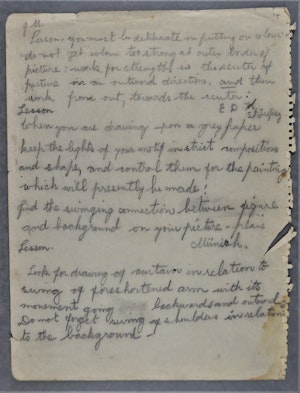 Lesson. you must be deliberate in putting on colour
do not get colour too strong at outer border of
picture - work for strength is the center of
picture in an outward direction, and then
work from out, towards the center!
Lesson
When you are drawing upon a grey paper
keep the lights of your motif in strict compositions
and shape, and control them for the painting
which will presently be made!
find the swinging connections between figure
and background on your picture-plane
Lesson. Münich.
Look for drawing of curtain in relation to
swing of foreshortened arm with its
movement going backwards and outward
Do not forget swing of shoulders in relation
to the background